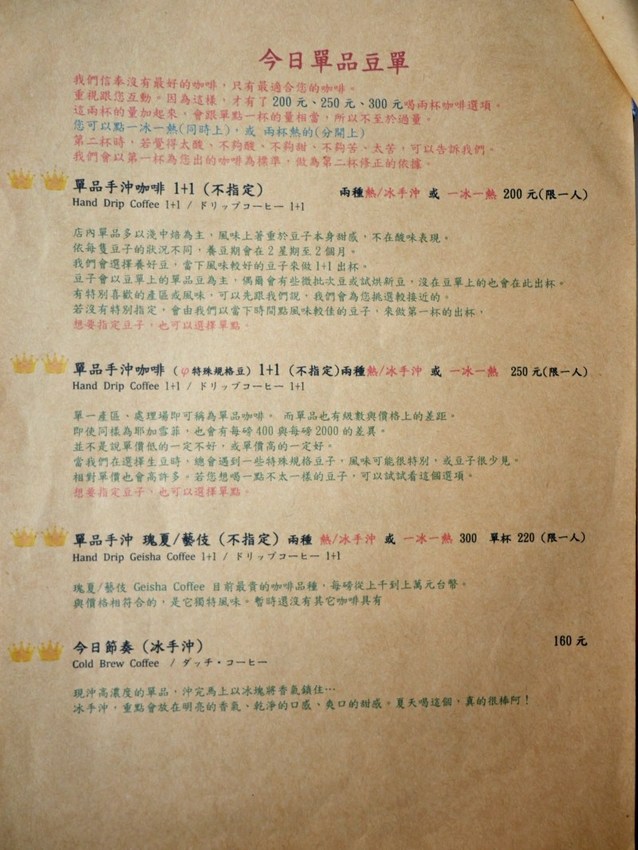 今日單品豆單
我們信奉沒有最好的咖啡，只有最適合您的咖啡。
重視跟您互動。因為這樣，才有了 200 元、250 元、300 元喝兩杯咖啡選項。
這兩杯的量加起來，會跟單點一杯的量相當，所以不至於過量。
您可以點一冰一熱(同時上)，或 兩杯熱的(分開上)
第二杯時，若覺得太酸、不夠酸、不夠甜、不夠苦、太苦，可以告訴我們。
我們會以第一杯為您出的咖啡為標準，做為第二杯修正的依據。
單品手沖咖啡 1+1 (不指定) 兩種熱/冰手沖 或 一冰一熱 200 元(限一人)
Hand Drip Coffee 1+1 / ドリップコーヒー 1+1
店內單品多以淺中焙為主，風味上著重於豆子本身甜感，不在酸味表現。
依每隻豆子的狀況不同，養豆期會在 2 星期至 2 個月。
我們會選擇養好豆，當下風味較好的豆子來做 1+1 出杯。
豆子會以豆單上的單品豆為主，偶爾會有些微批次豆或試烘新豆，沒在豆單上的也會在此出杯。
有特別喜歡的產區或風味，可以先跟我們說，我們會為您挑選較接近的。
若沒有特別指定，會由我們以當下時間點風味較佳的豆子，來做第一杯的出杯，
想要指定豆子，也可以選擇單點。
單品手沖咖啡 (φ特殊規格豆) 1+1 (不指定)兩種熱/冰手沖 或 一冰一熱 250 元(限一人)
Hand Drip Coffee 1+1 / ドリップコーヒー 1+1
單一產區、處理場即可稱為單品咖啡。 而單品也有級數與價格上的差距。
即使同樣為耶加雪菲，也會有每磅 400 與每磅 2000 的差異。
並不是說單價低的一定不好，或單價高的一定好。
當我們在選擇生豆時，總會遇到一些特殊規格豆子，風味可能很特別，或豆子很少見。
相對單價也會高許多。若您想喝一點不太一樣的豆子，可以試試看這個選項。
想要指定豆子，也可以選擇單點。
單品手沖 瑰夏/藝伎 (不指定) 兩種 熱/冰手沖 或 一冰一熱 300 單杯 220 (限一人)
Hand Drip Geisha Coffee 1+1 / ドリップコーヒー 1+1
瑰夏/藝伎 Geisha Coffee 目前最貴的咖啡品種，每磅從上千到上萬元台幣。
與價格相符合的，是它獨特風味。暫時還沒有其它咖啡具有
今日節奏 (冰手沖) 160 元
Cold Brew Coffee / ダッチ・コーヒー
現沖高濃度的單品，沖完馬上以冰塊將香氣鎖住…
冰手沖，重點會放在明亮的香氣、乾淨的口感、爽口的甜感。夏天喝這個，真的很棒阿！